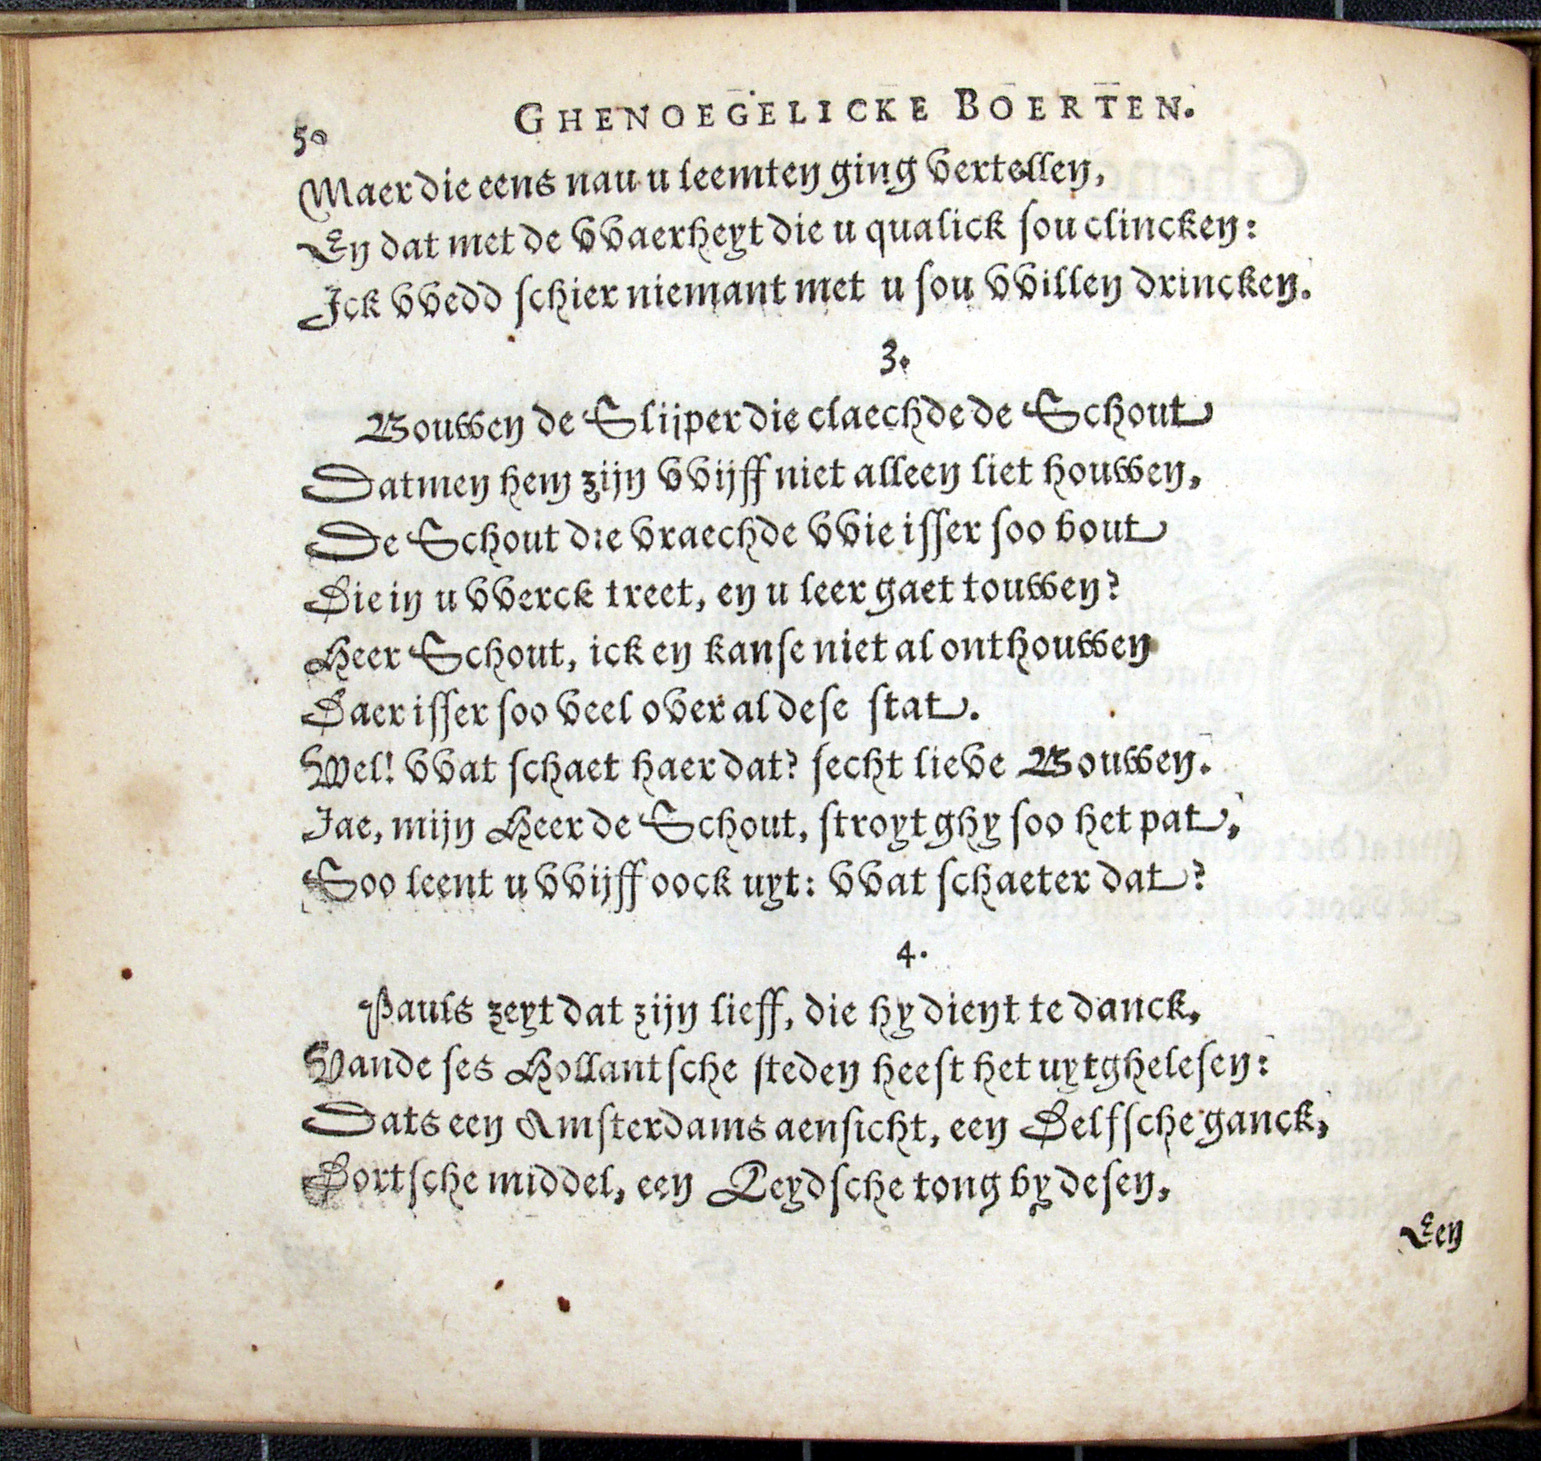 50 GHENOEGELICKE BOERTEN.
Maer die eens nau u leemten ging vertellen,
En dat met de vvaerheyt die u qualick sou clincken:
Ick vvedd schier niemant met u sou vvillen drincken.
3.
Bouwen de Slijper die claechde de Schout
Datmen hem zijn vvijff niet alleen liet houwen,
De Schout die vraechde vvie isser soo bout
Die in u vverck treet, en u leer gaet touwen?
Heer Schout, ick en kanse niet al onthouwen
Daer isser soo veel over al dese stat.
Wel! vvat schaet haer dat? secht lieve Bouwen.
Jae, mijn Heer de Schout, stroyt ghy soo het pat,
Soo leent u vvijff oock uyt: vvat schaeter dat?
4.
Pauls zeyt dat zijn lieff, die hy dient te danck,
Vande ses Hollantsche steden heeft het uytghelesen:
Dats een Amsterdams aensicht, een Delfsche ganck,
Dortsche middel, een Leydsche tong by desen,
Een